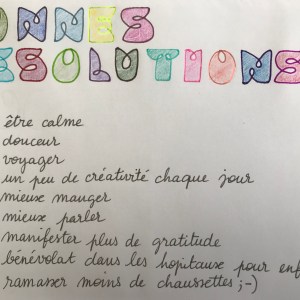 ONNES
ESOLUTIONS
être calme
douceur
voyager
un peu de créativité chaque jour
mieux manger
mieux parler
manifester plus de gratitude
bénévolat dans les hôpitaux pour enf
ramasser moins de chaussettes ;-)